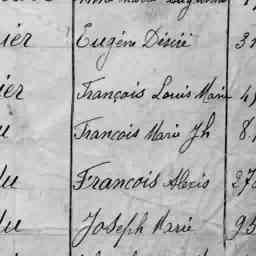 ier Eugène Désiré 3
ier François Louis Marie 4
François Marie Jh 8.
du François Alexis 270
du Joseph Marie 95